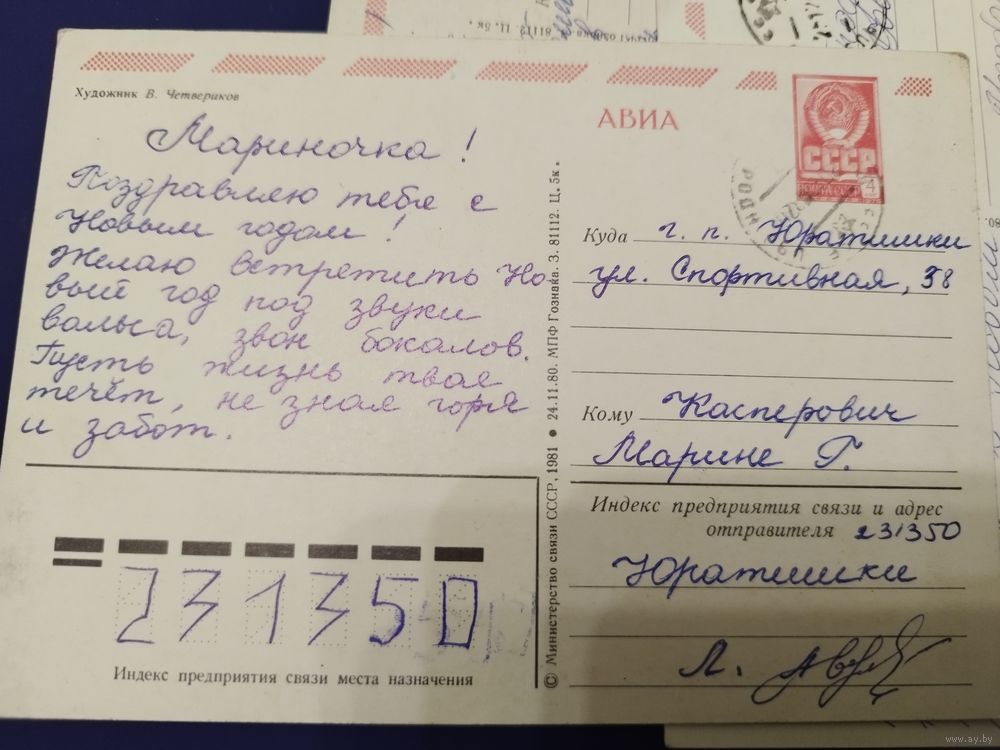 81112. Ц. 5к.
Художник В. Четвериков
АВИА
СССР
ПОЧТА СССР
4
Мариночка!
Поздравляю тебя с
Новым годом!
Желаю встретить Но-
вый год под звуки
вальса, звон бокалов.
Пусть жизнь твая
течёт, не зная горя
и забот.
Куда г. п. Юратишки
ул. Спортивная, 38
Кому Касперович
Марине Г.
Индекс предприятия связи и адрес
отправителя 231350
Юратишки
Л.
231350
Индекс предприятия связи места назначения
© Министерство связи СССР, 1981 ● 24.11.80. МПФ Гознака. З. 81112. Ц. 5к.
www.ay.by